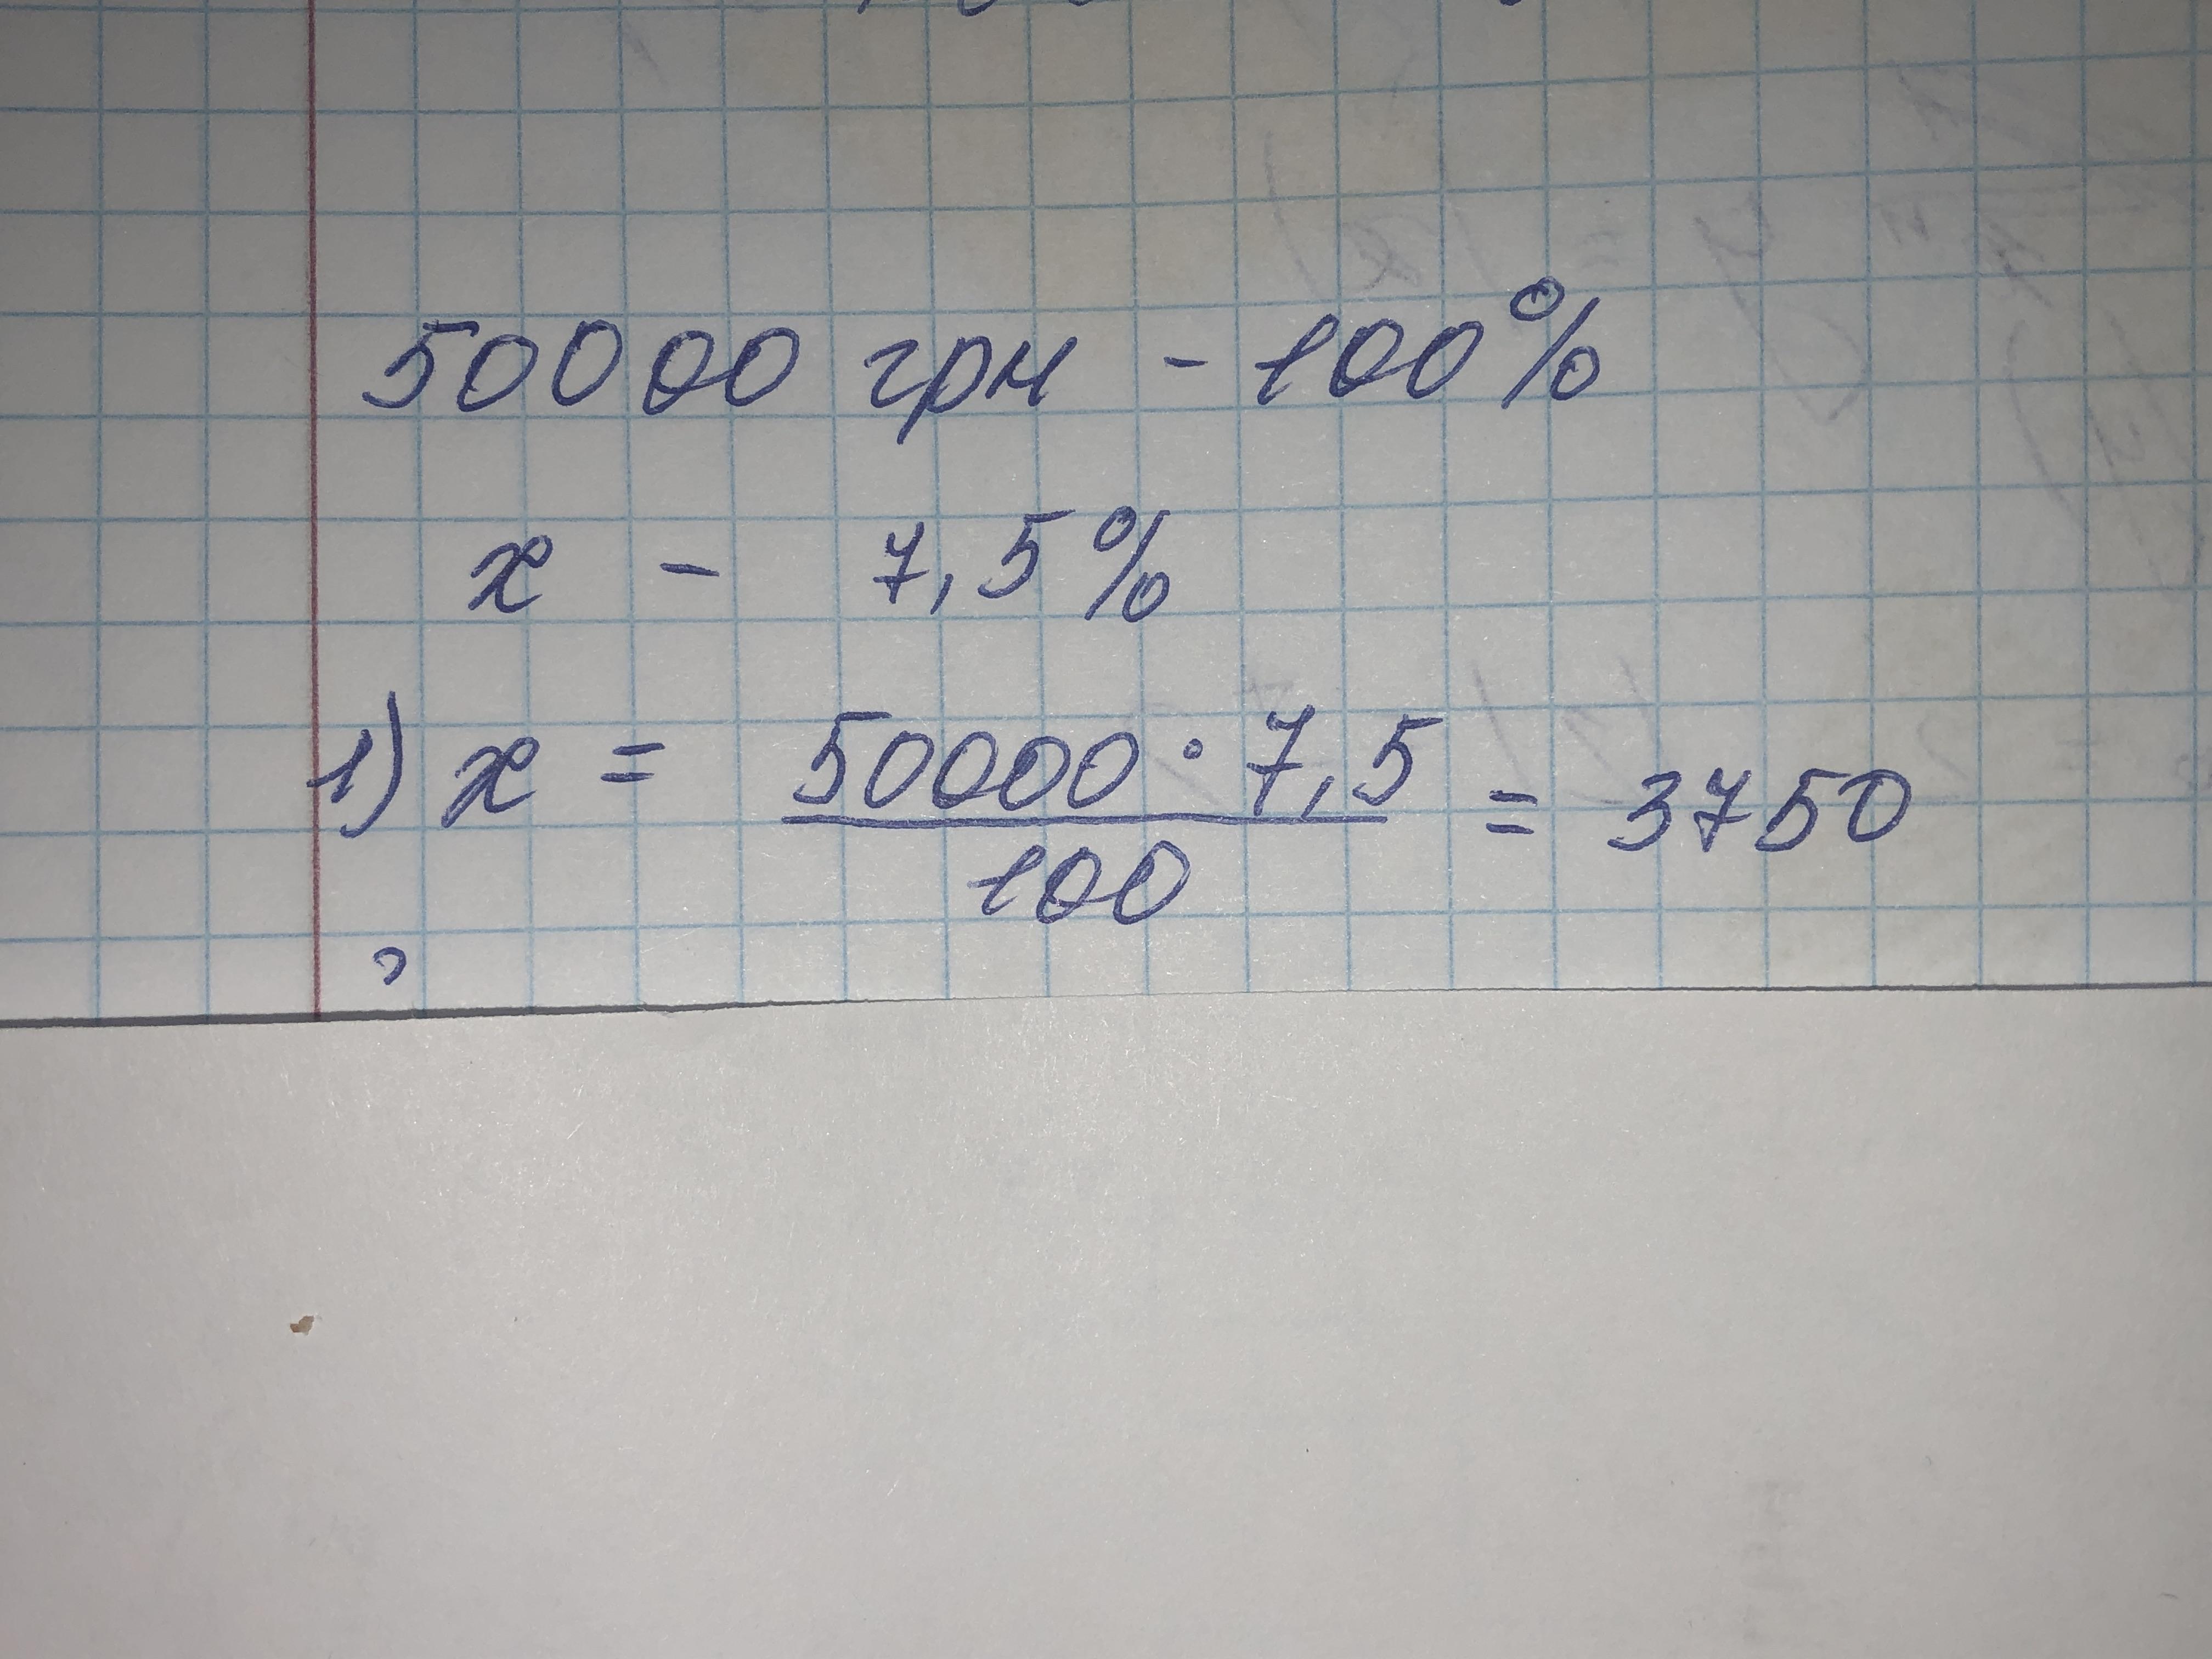 50000 грн - 100%
x - 7,5%
1) x = 50000 · 7,5 / 100 = 3750